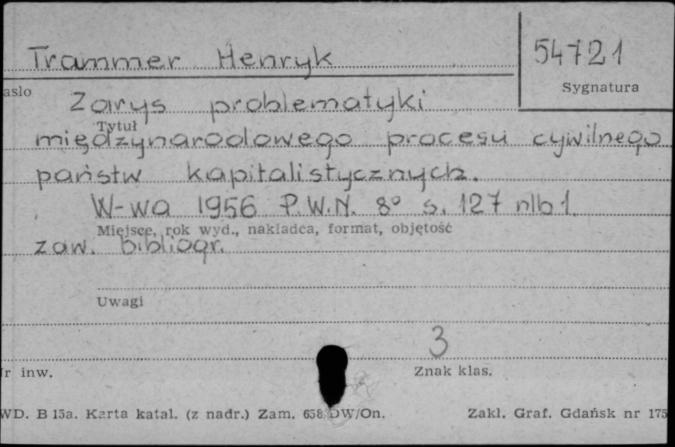 Trammer Henryk
54721
Sygnatura
asło
Zarys problematyki
Tytuł
międzynarodowego procesu cywilnego
państw kapitalistycznych.
W-wa 1956 P.W.N. 8° s. 127 nlb 1.
Miejsce, rok wyd., nakładca, format, objętość
zaw. bibliogr.
Uwagi
3
r inw.
Znak klas.
WD. B 15a. Karta katal. (z nadr.) Zam. 658/DW/On.
Zakł. Graf. Gdańsk nr 175